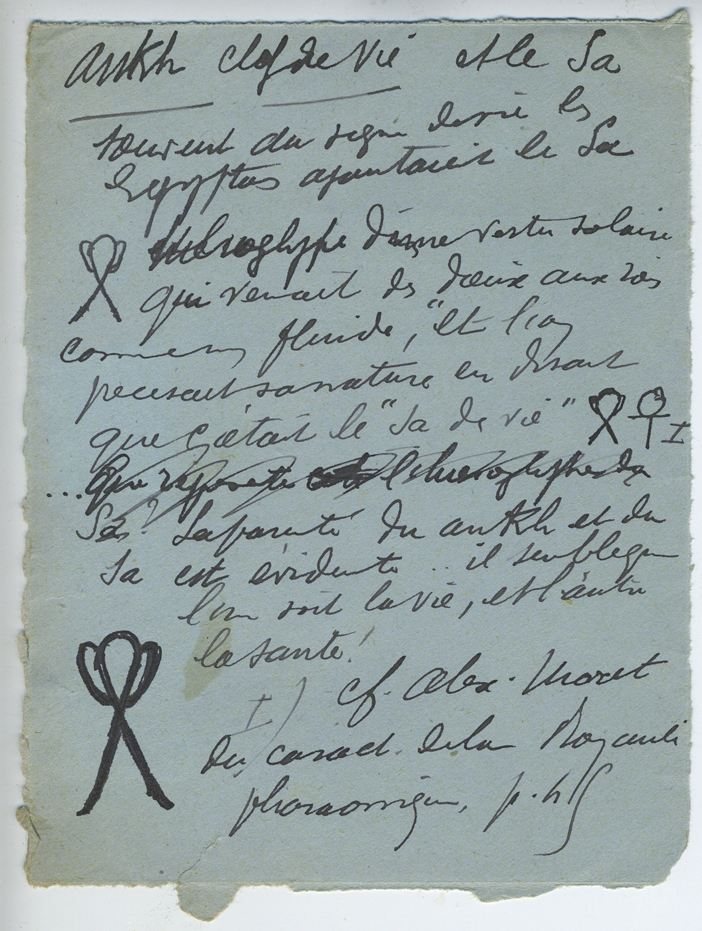 Ankh clef de vie et le Sa
souvent du signe de vie les
Egyptiens ajoutaient le Sa
Hieroglyphe d'une vertu solaire
qui venait des dieux aux rois
comme un fluide, "et l'on
precisait sa nature en disant
que c'était le "Sa de vie" I
... Que represente l'hieroglyphe du
Sa? La parenté du ankh et du
Sa est évidente .. il semble que
l'un soit la vie, et l'autre
la santé!
I) cf. Alex. Moret
Du caract. de la Royauté
pharaonique, p.